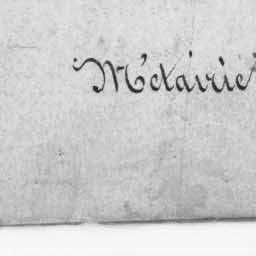 Métairie